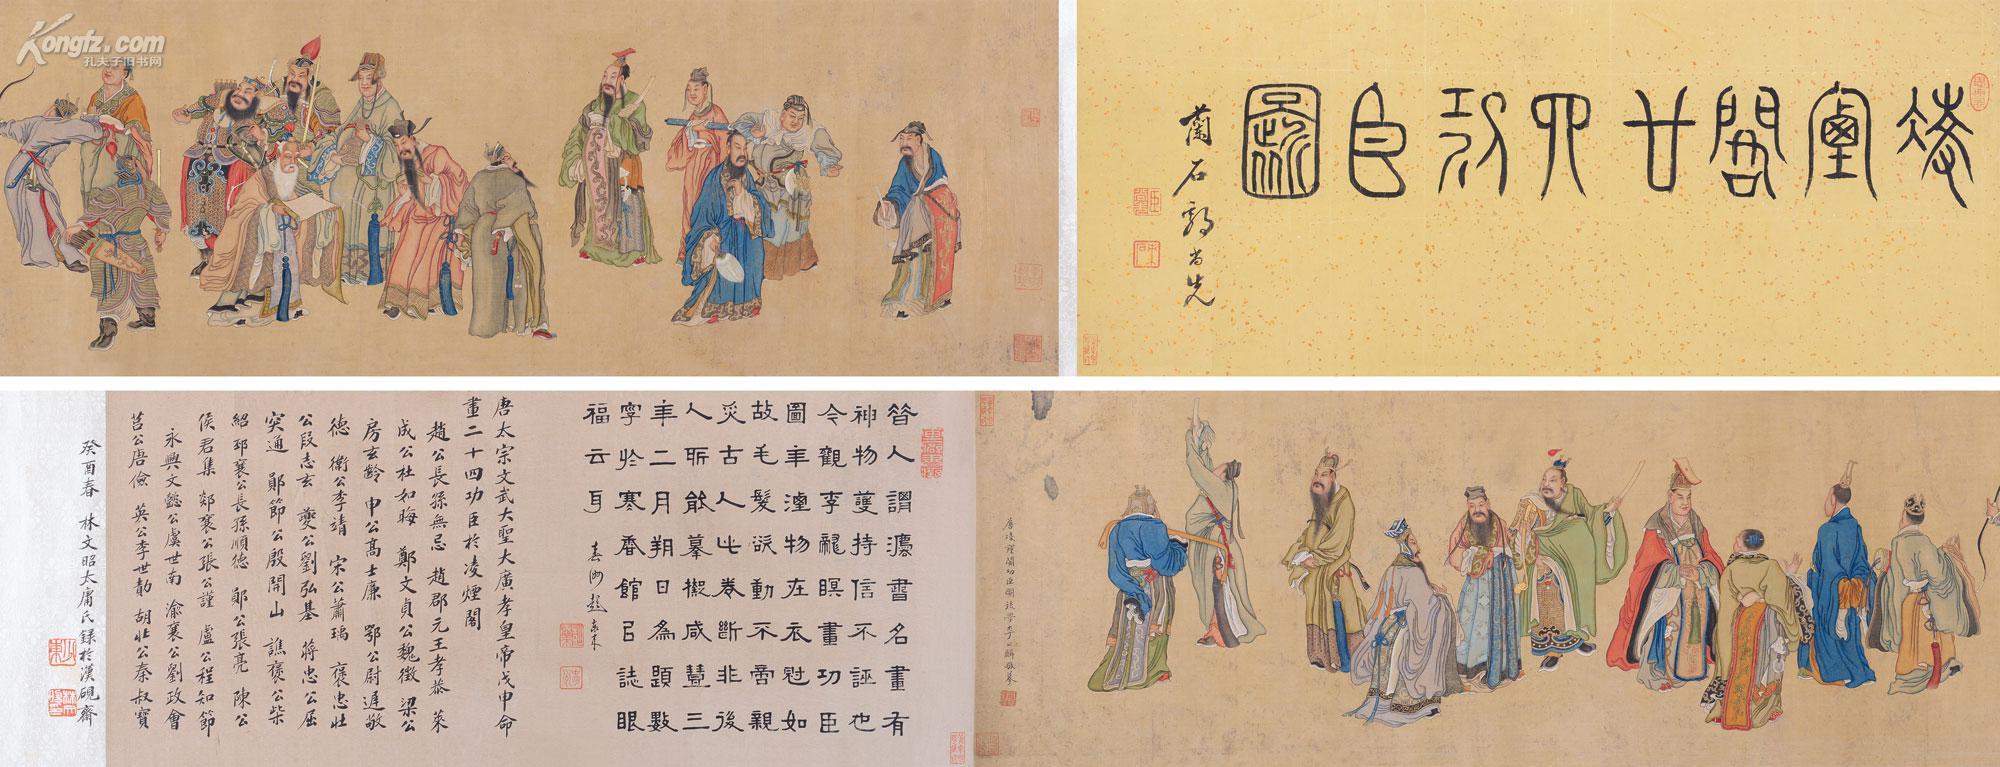 Kongfz.com
孔夫子旧书网
凌煙閣廿四功臣圖
蘭石郭尚先
昔人謂灋書名畫有
神物護持信不誣也
今觀李龍瞑畫功臣
圖年湮物在衣冠如
故毛髮欲動不啻親
炙古人此卷斷非後
人所能摹擬咸豐三
年二月朔日為題數
字於寒香館以誌眼
福云耳
唐太宗文武大聖大廣孝皇帝戊申命
畫二十四功臣於凌煙閣
趙公長孫無忌 趙郡元王孝恭 萊
成公杜如晦 鄭文貞公魏徵 梁公
房玄齡 申公高士廉 鄂公尉遲敬
德 衛公李靖 宋公蕭瑀 褒忠壯
公段志玄 夔公劉弘基 蔣忠公屈
突通 鄖節公殷開山 譙襄公柴
紹 邳襄公長孫順德 鄖公張亮 陳公
侯君集 郯襄公張公謹 盧公程知節
永興文懿公虞世南 渝襄公劉政會
莒公唐儉 英公李世勣 胡壯公秦叔寶
癸酉春 林文昭太庸氏録於漢硯齋